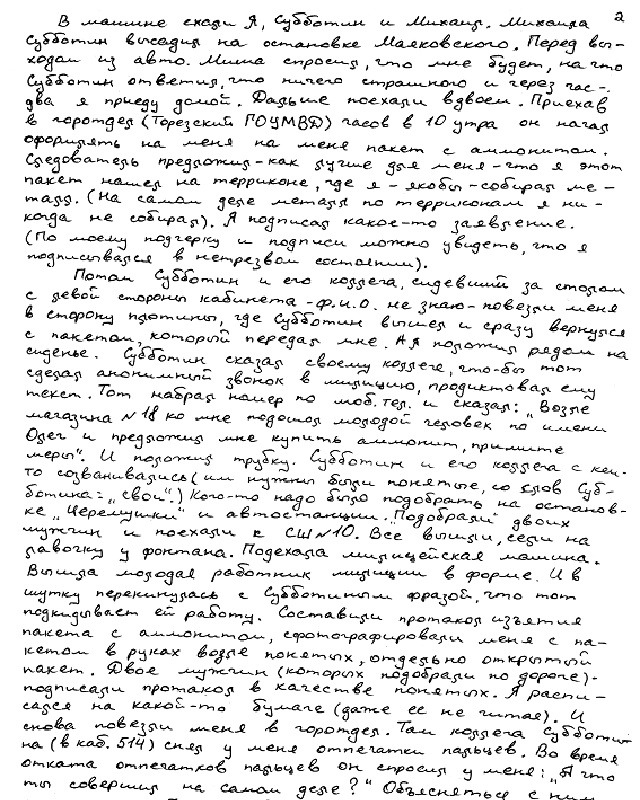 2
В машине ехали Я, Субботин и Михаил. Михаила
Субботин высадил на остановке Маяковского. Перед вы-
ходом из авто. Миша спросил, что мне будет, на что
Субботин ответил, что ничего страшного и через час-
два я приеду домой. Дальше поехали вдвоем. Приехав
в горотдел (Торезский ГОУМВД) часов в 10 утра он начал
оформлять на меня пакет с аммонитом.
Следователь предложил - как лучше для меня - что я этот
пакет нашел на терриконе, где я - якобы - собирал ме-
талл. (На самом деле металл по терриконам я ни-
когда не собирал). Я подписал какое-то заявление.
(По моему подчерку и подписи можно увидеть, что я
подписывался в нетрезвом состоянии).
Потом Субботин и его коллега, сидевший за столом
с левой стороны кабинета - ф.и.о. не знаю - повезли меня
в сторону плотины, где Субботин вышел и сразу вернулся
с пакетом, который передал мне. А я положил рядом на
сиденье. Субботин сказал своему коллеге, что-бы тот
сделал анонимный звонок в милицию, продиктовал ему
текст. Тот набрал номер по моб. тел. и сказал: „Возле
магазина №18 ко мне подошел молодой человек по имени
Олег и предложил мне купить аммонит, примите
меры". И положил трубку. Субботин и его коллега с кем-
то созванивались (им нужны были понятые, со слов Суб-
ботина: „свои".) Кого-то надо было подобрать на останов-
ке „Черемушки" и автостанции. Подобрали двоих
мужчин и поехали к СШ №10. Все вышли, сели на
лавочку у фонтана. Подъехала милицейская машина.
Вышла молодая работник милиции в форме. И в
шутку перекинулась с Субботиным фразой, что тот
подкидывает ей работу. Составили протокол изъятия
пакета с аммонитом, сфотографировали меня с па-
кетом в руках возле понятых, отдельно открытый
пакет. Двое мужчин (которых подобрали по дороге)
подписали протокол в качестве понятых. Я распи-
сался на какой-то бумаге (даже ее не читал). И
снова повезли меня в горотдел. Там коллега Субботи-
на (в каб. 514) снял у меня отпечатки пальцев. Во время
отката отпечатков пальцев он спросил у меня: „А что
ты совершил на самом деле?" Объясняться с ним